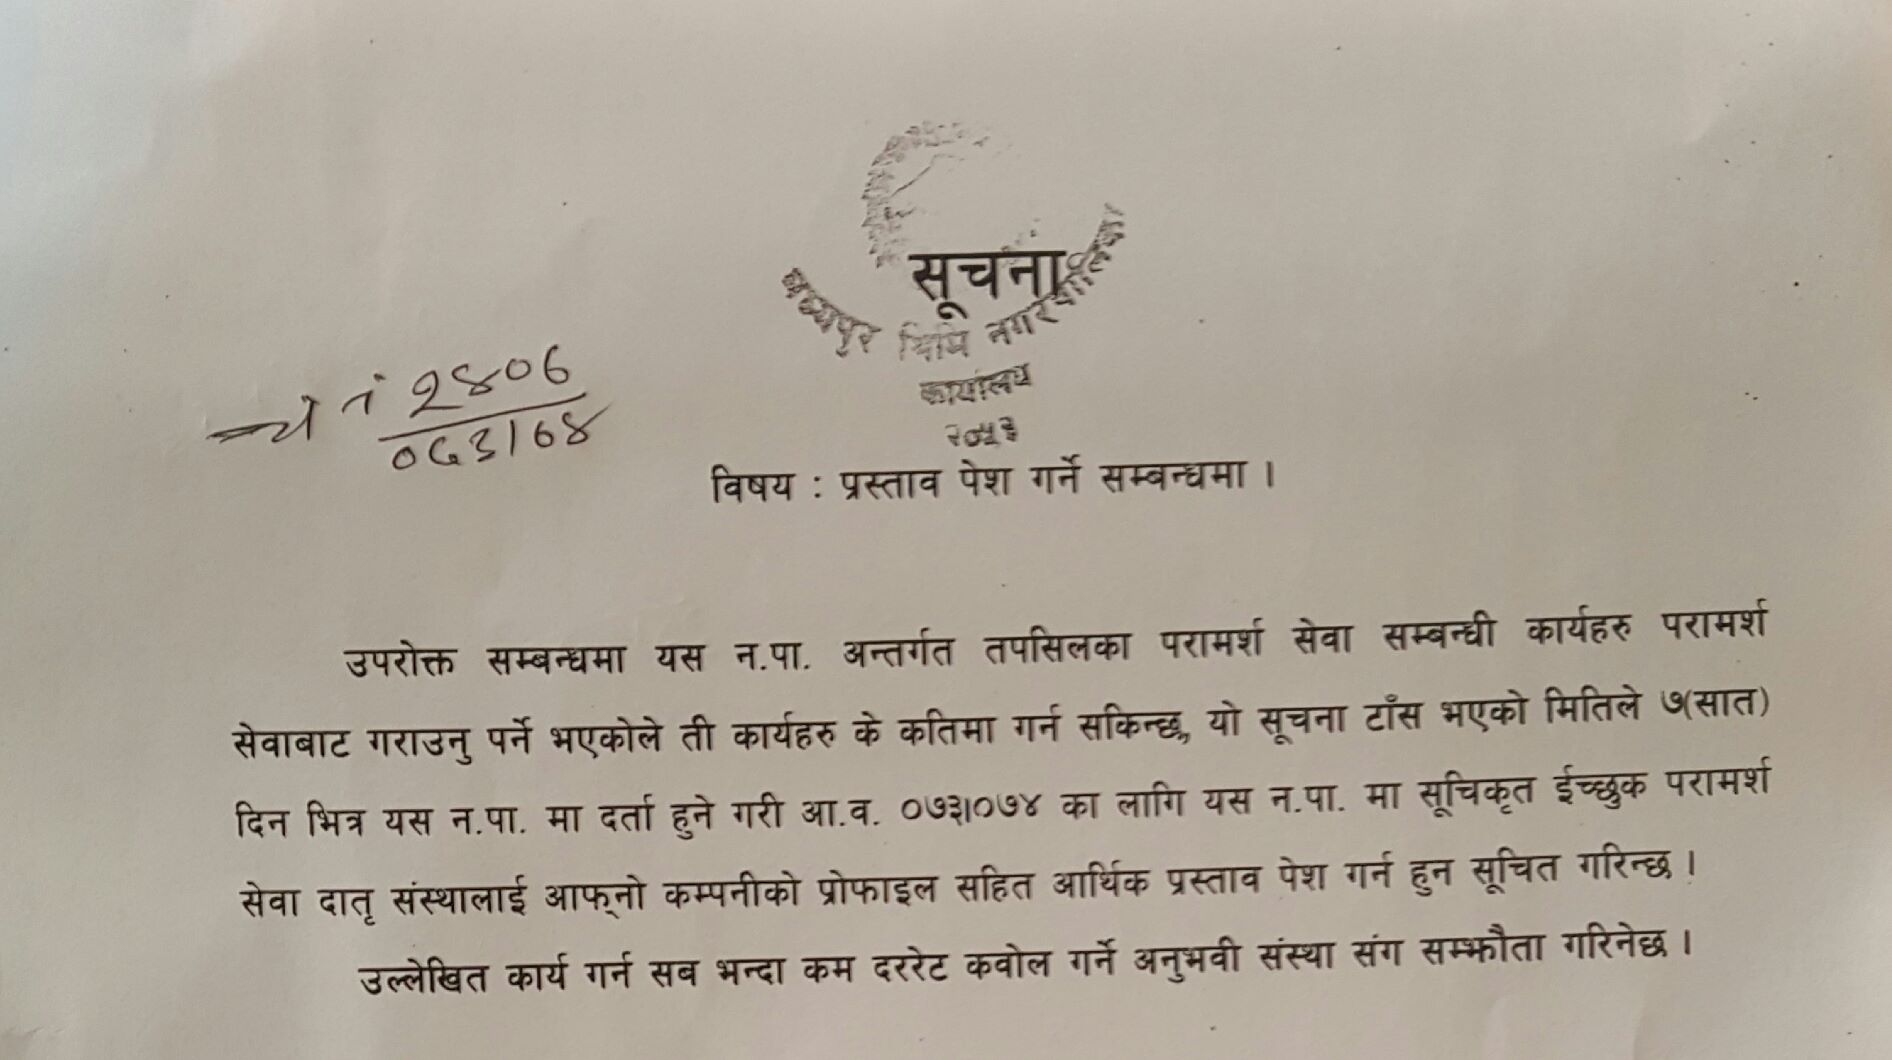 सूचना
मध्यपुर थिमि नगरपालिका
कार्यालय
२०५३
च नं २४०७
०७३।७४
विषय : प्रस्ताव पेश गर्ने सम्बन्धमा ।
उपरोक्त सम्बन्धमा यस न.पा. अन्तर्गत तपसिलका परामर्श सेवा सम्बन्धी कार्यहरु परामर्श
सेवाबाट गराउनु पर्ने भएकोले ती कार्यहरु के कतिमा गर्न सकिन्छ, यो सूचना टाँस भएको मितिले ७(सात)
दिन भित्र यस न.पा. मा दर्ता हुने गरी आ.व. ०७३।०७४ का लागि यस न.पा. मा सूचिकृत ईच्छुक परामर्श
सेवा दातृ संस्थालाई आफ्‌नो कम्पनीको प्रोफाइल सहित आर्थिक प्रस्ताव पेश गर्न हुन सूचित गरिन्छ ।
उल्लेखित कार्य गर्न सब भन्दा कम दररेट कवोल गर्ने अनुभवी संस्था संग सम्झौता गरिनेछ ।